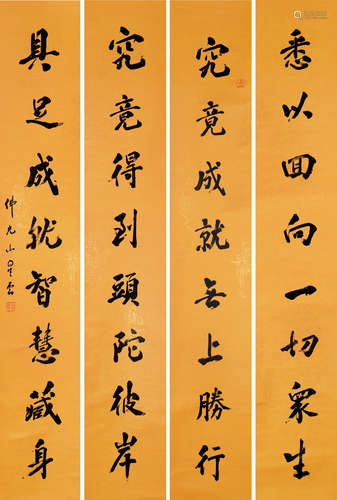 悉以回向一切眾生
究竟成就无上勝行
究竟得到頭陀彼岸
具足成就智慧藏身
佛光山星雲